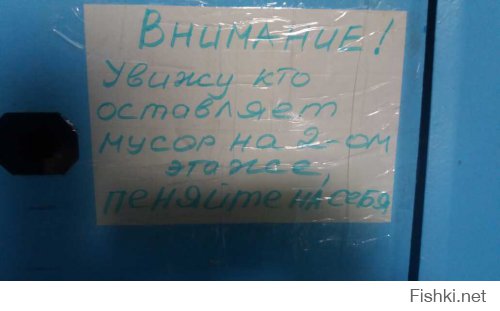 Внимание!
Увижу кто
оставляет
мусор на 2-ом
этаже,
пеняйте на себя
Fishki.net